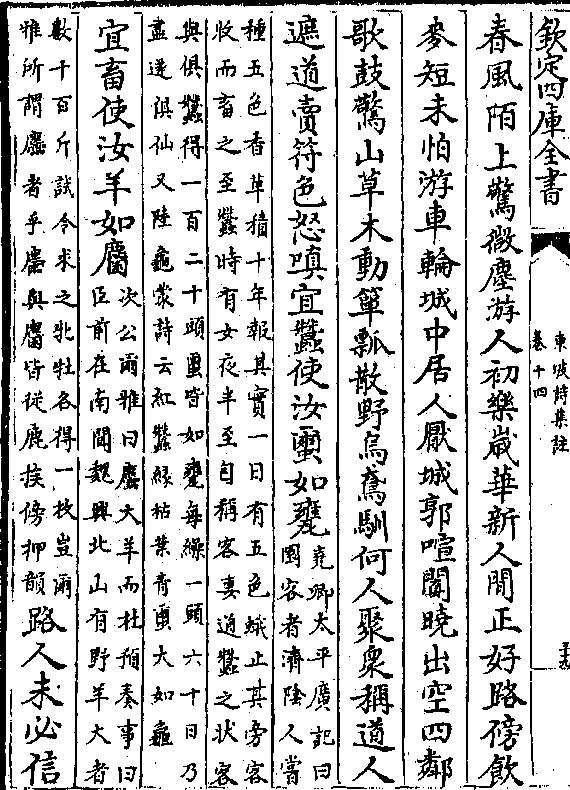 欽定四庫全書
東坡詩集註
卷十四
春風陌上驚微塵游人初樂歲華新人閒正好路傍飲
麥短未怕游車輪城中居人厭城郭喧闐曉出空四鄰
歌鼓驚山草木動簞瓢散野烏鳶馴何人聚衆稱道人
遮道賣符色怒嗔宜蠶使汝繭如甕
堯卿太平廣記曰
園客者濟陰人嘗
種五色香草積十年報其實一日有五色蛾止其旁客
收而畜之至蠶時有女夜半至自稱客妻道蠶之狀客
與俱蠶得一百二十頭繭皆如甕每繰一頭六十日乃
盡遂俱仙又陸龜蒙詩云紅蠶緣枯葉青繭大如龜
宜畜使汝羊如麕
次公爾雅曰麠大羊而杜預奏事曰
臣前在南聞魏興北山有野羊大者
數十百斤試令求之牝牡各得一枚豈爾
雅所謂麠者乎麠與麕皆從鹿挨傍押韻
路人未必信